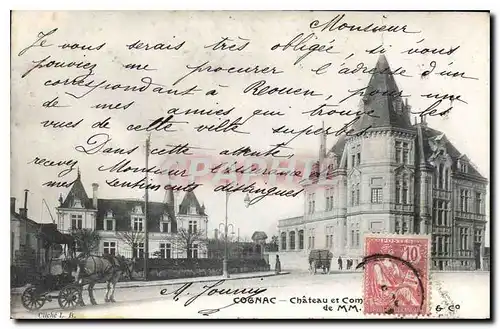 Monsieur
Je vous serais très obligée, si vous
pouviez me procurer l'adresse d'un
correspondant à Rouen, pour une
de mes amies qui trouve les
vues de cette ville superbes.
Dans cette attente
recevez Monsieur
mes sentiments distingués
COGNAC - Château et Com
de MM.
& Co
Cliché L. B.
10